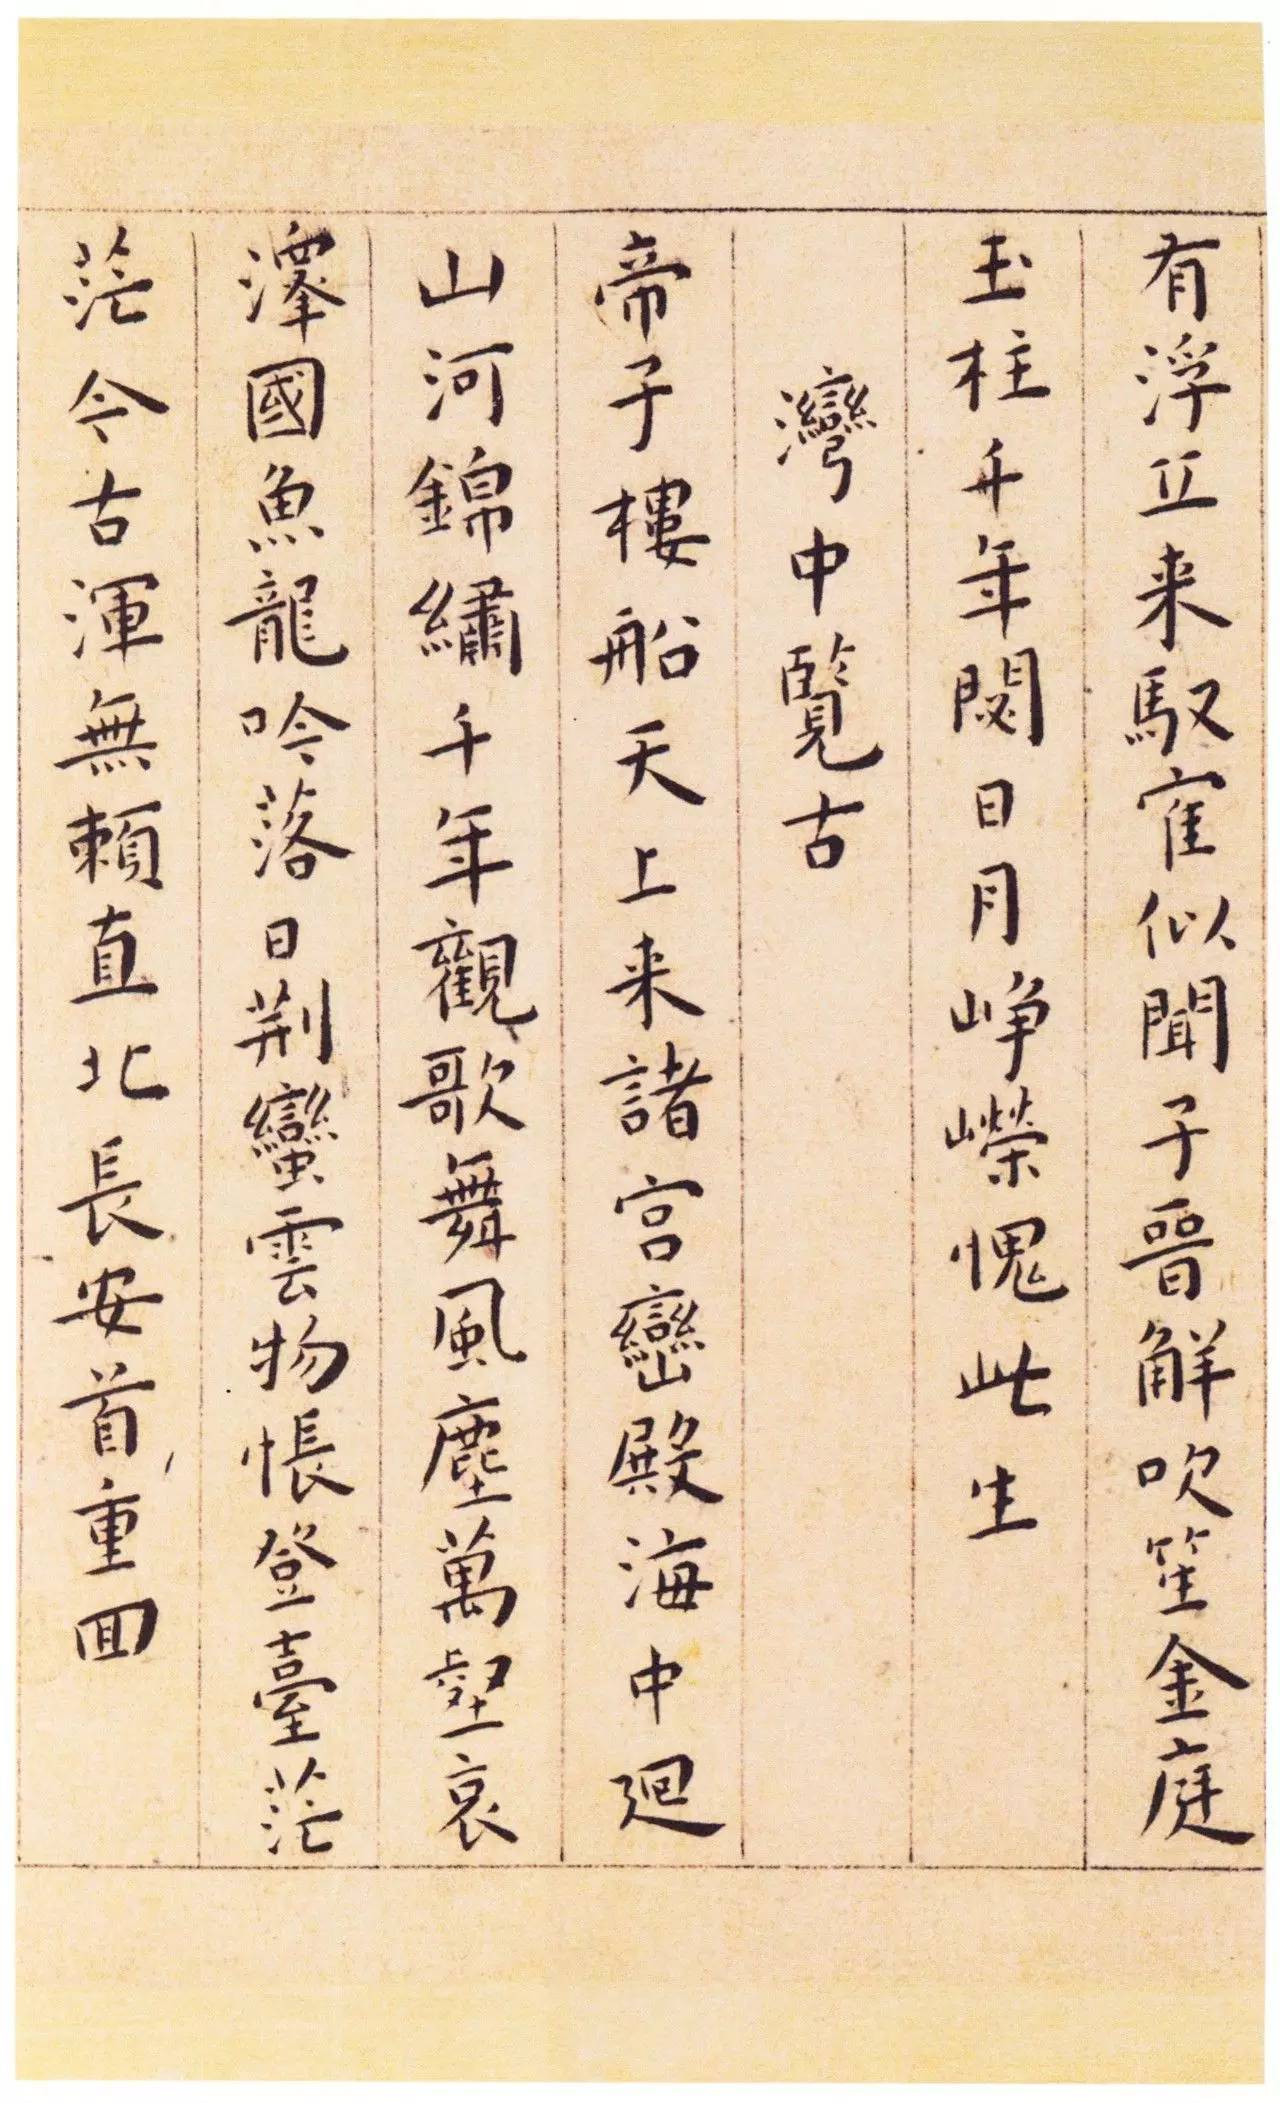 有浮丘来馭寉似聞子晉解吹笙金庭
玉柱千年閟日月崢嶸愧此生
灣中覽古
帝子樓船天上来諸宮巒殿海中廻
山河錦繡千年觀歌舞風塵萬壑哀
澤國魚龍吟落日荆蠻雲物悵登臺茫
茫今古渾無賴直北長安首重回